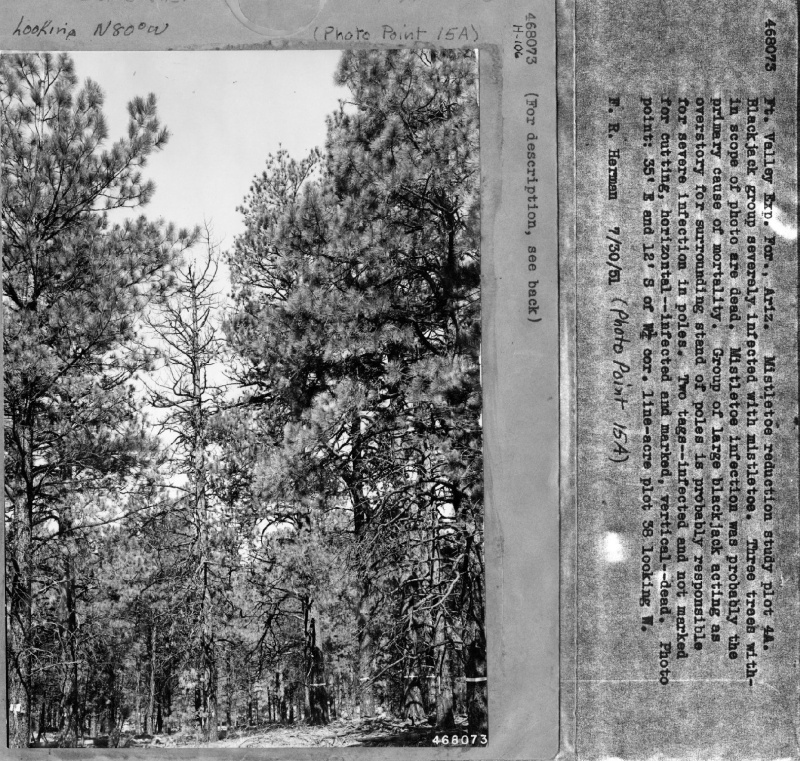 Looking N80°W (Photo Point 15A)
468073
H-106
(For description, see back)
468073
468073 Ft. Valley Exp. For., Ariz. Mistletoe reduction study plot 4A.
Blackjack group severely infected with mistletoe. Three trees with-
in scope of photo are dead. Mistletoe infection was probably the
primary cause of mortality. Group of large blackjack acting as
overstory for surrounding stand of poles is probably responsible
for severe infection in poles. Two tags--infected and not marked
for cutting, horizontal--infected and marked, vertical--dead. Photo
point: 35' E and 12' S of W¼ cor. line-acre plot 38 looking W.
F. R. Herman 7/30/51 (Photo Point 15A)